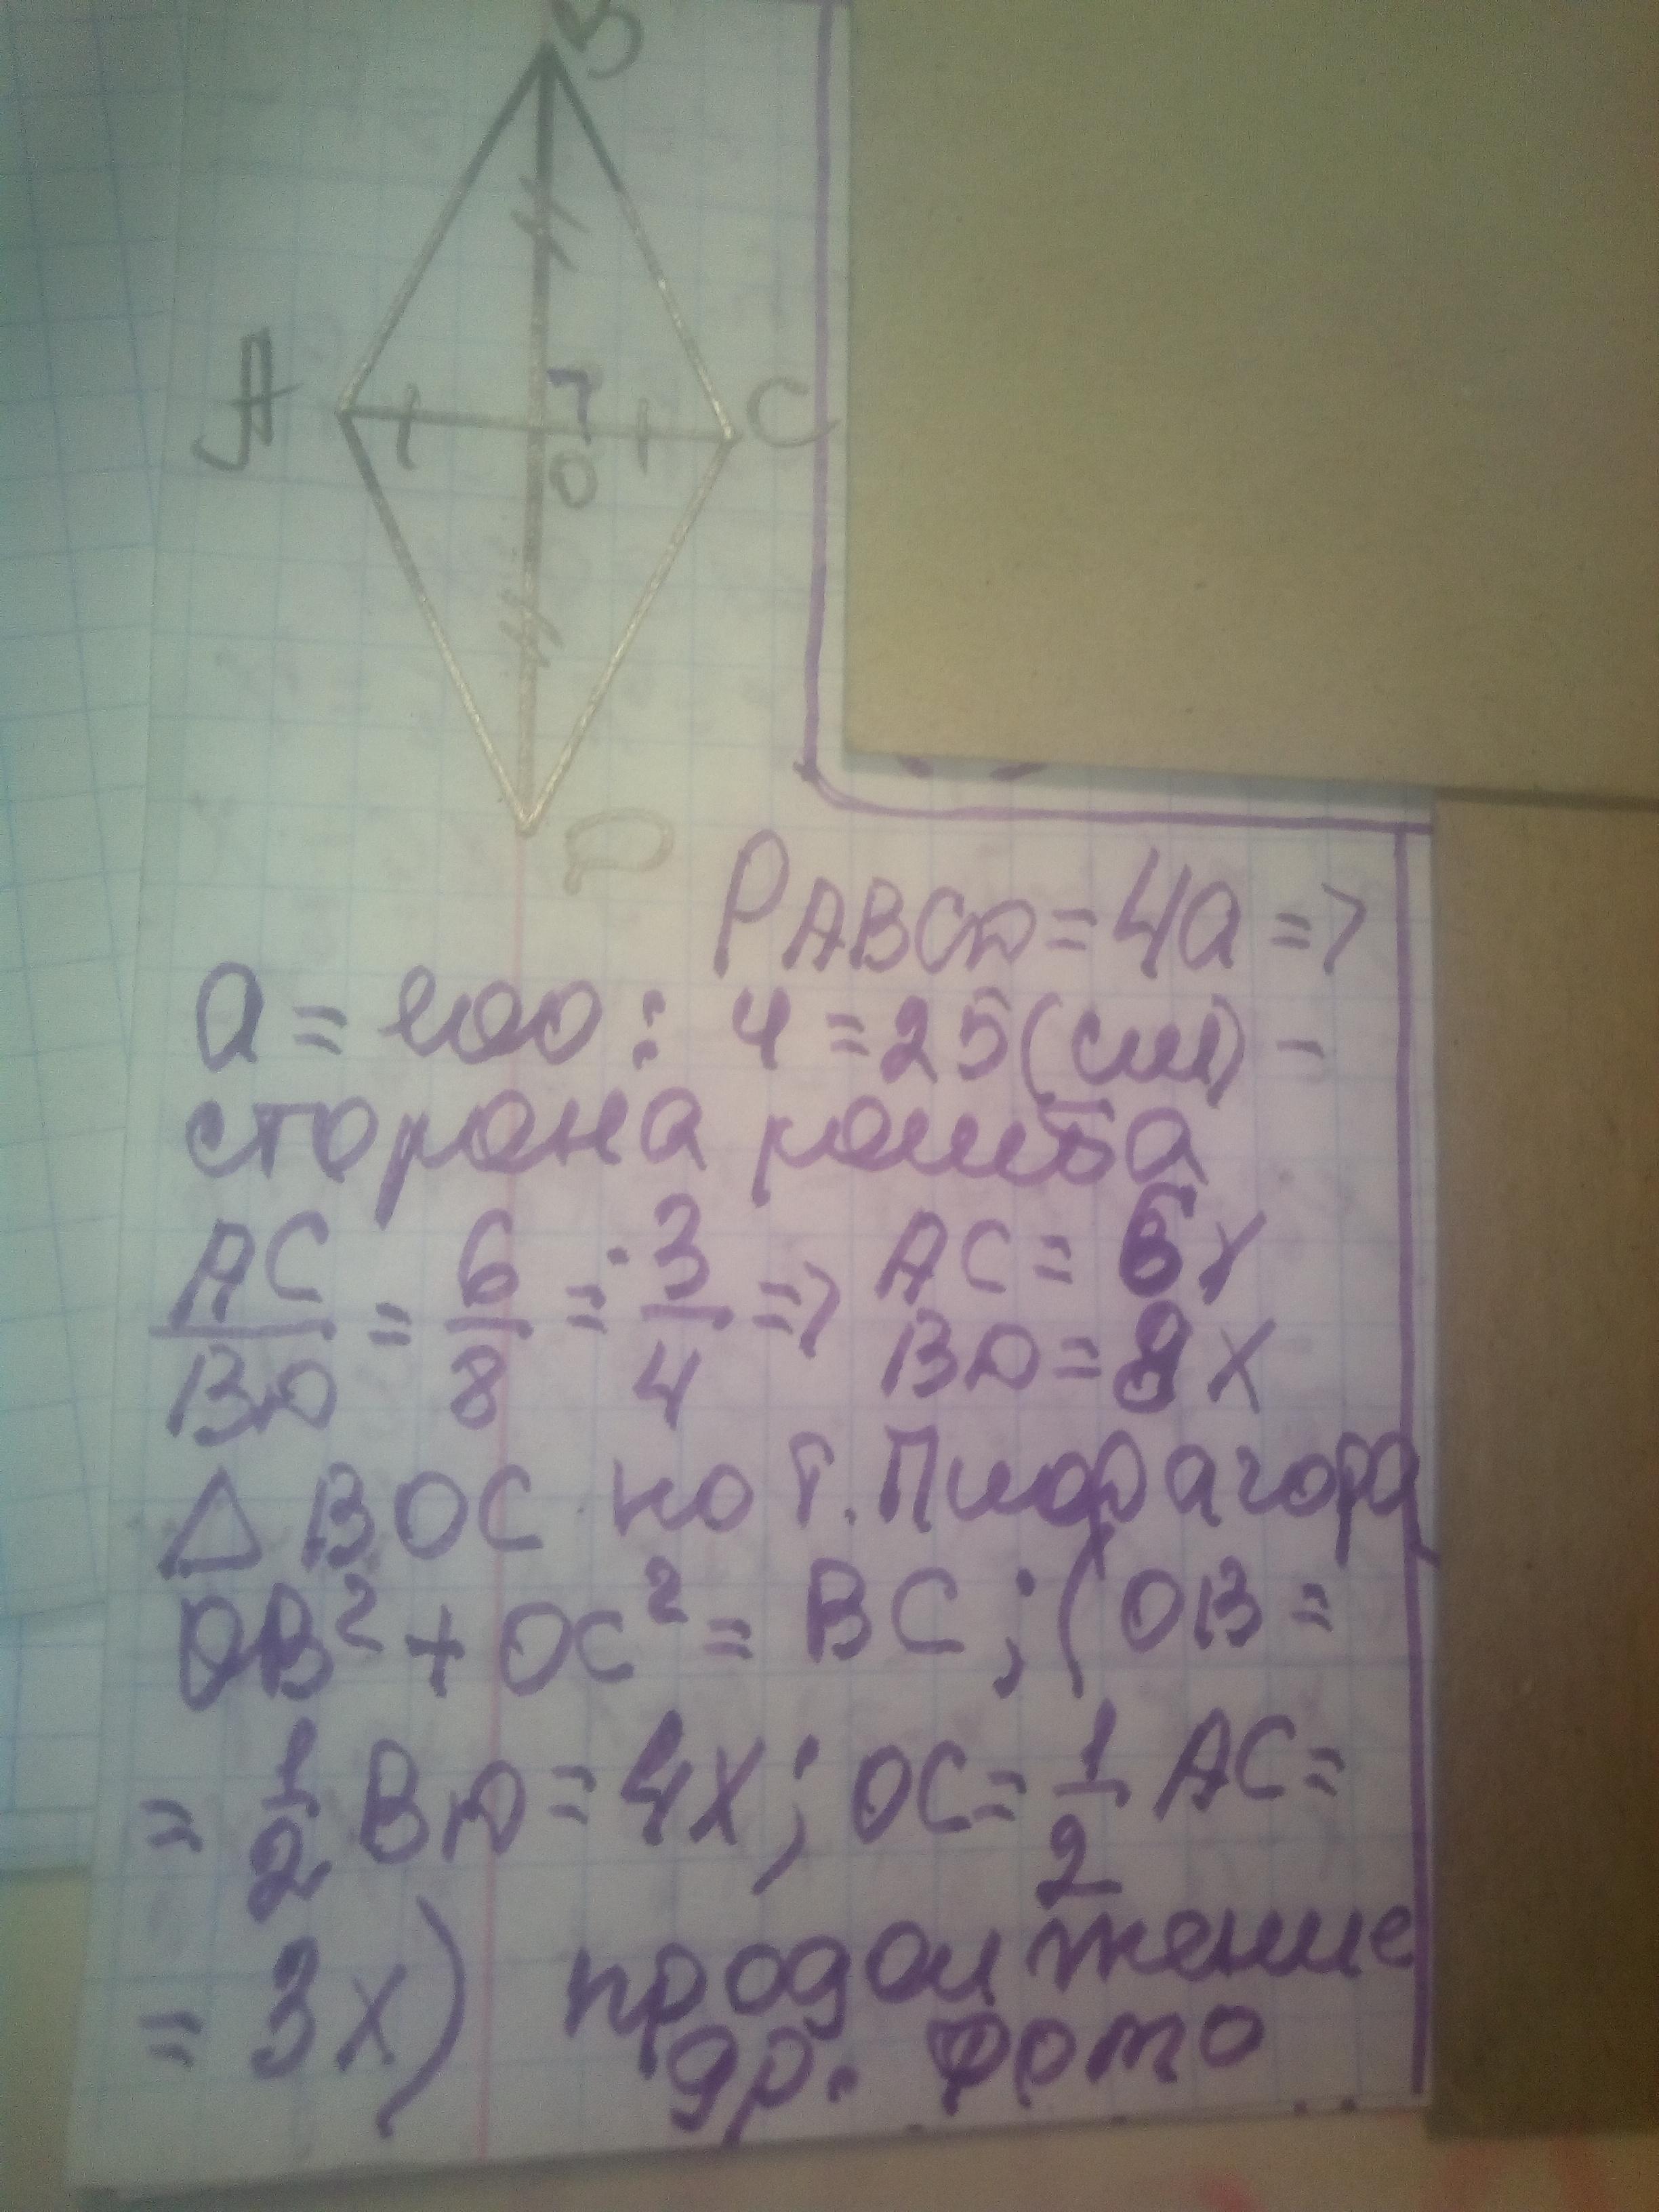 B
A
C
O
D
P ABCD = 4a =>
a = 100 : 4 = 25 (см) -
сторона ромба
AC/BD = 6/8 = 3/4 => AC = 6x
BD = 8x
△ BOC по т. Пифагора
OB² + OC² = BC ; (OB =
= 1/2 BD = 4x ; OC = 1/2 AC =
= 3x) продолжение
др. фото